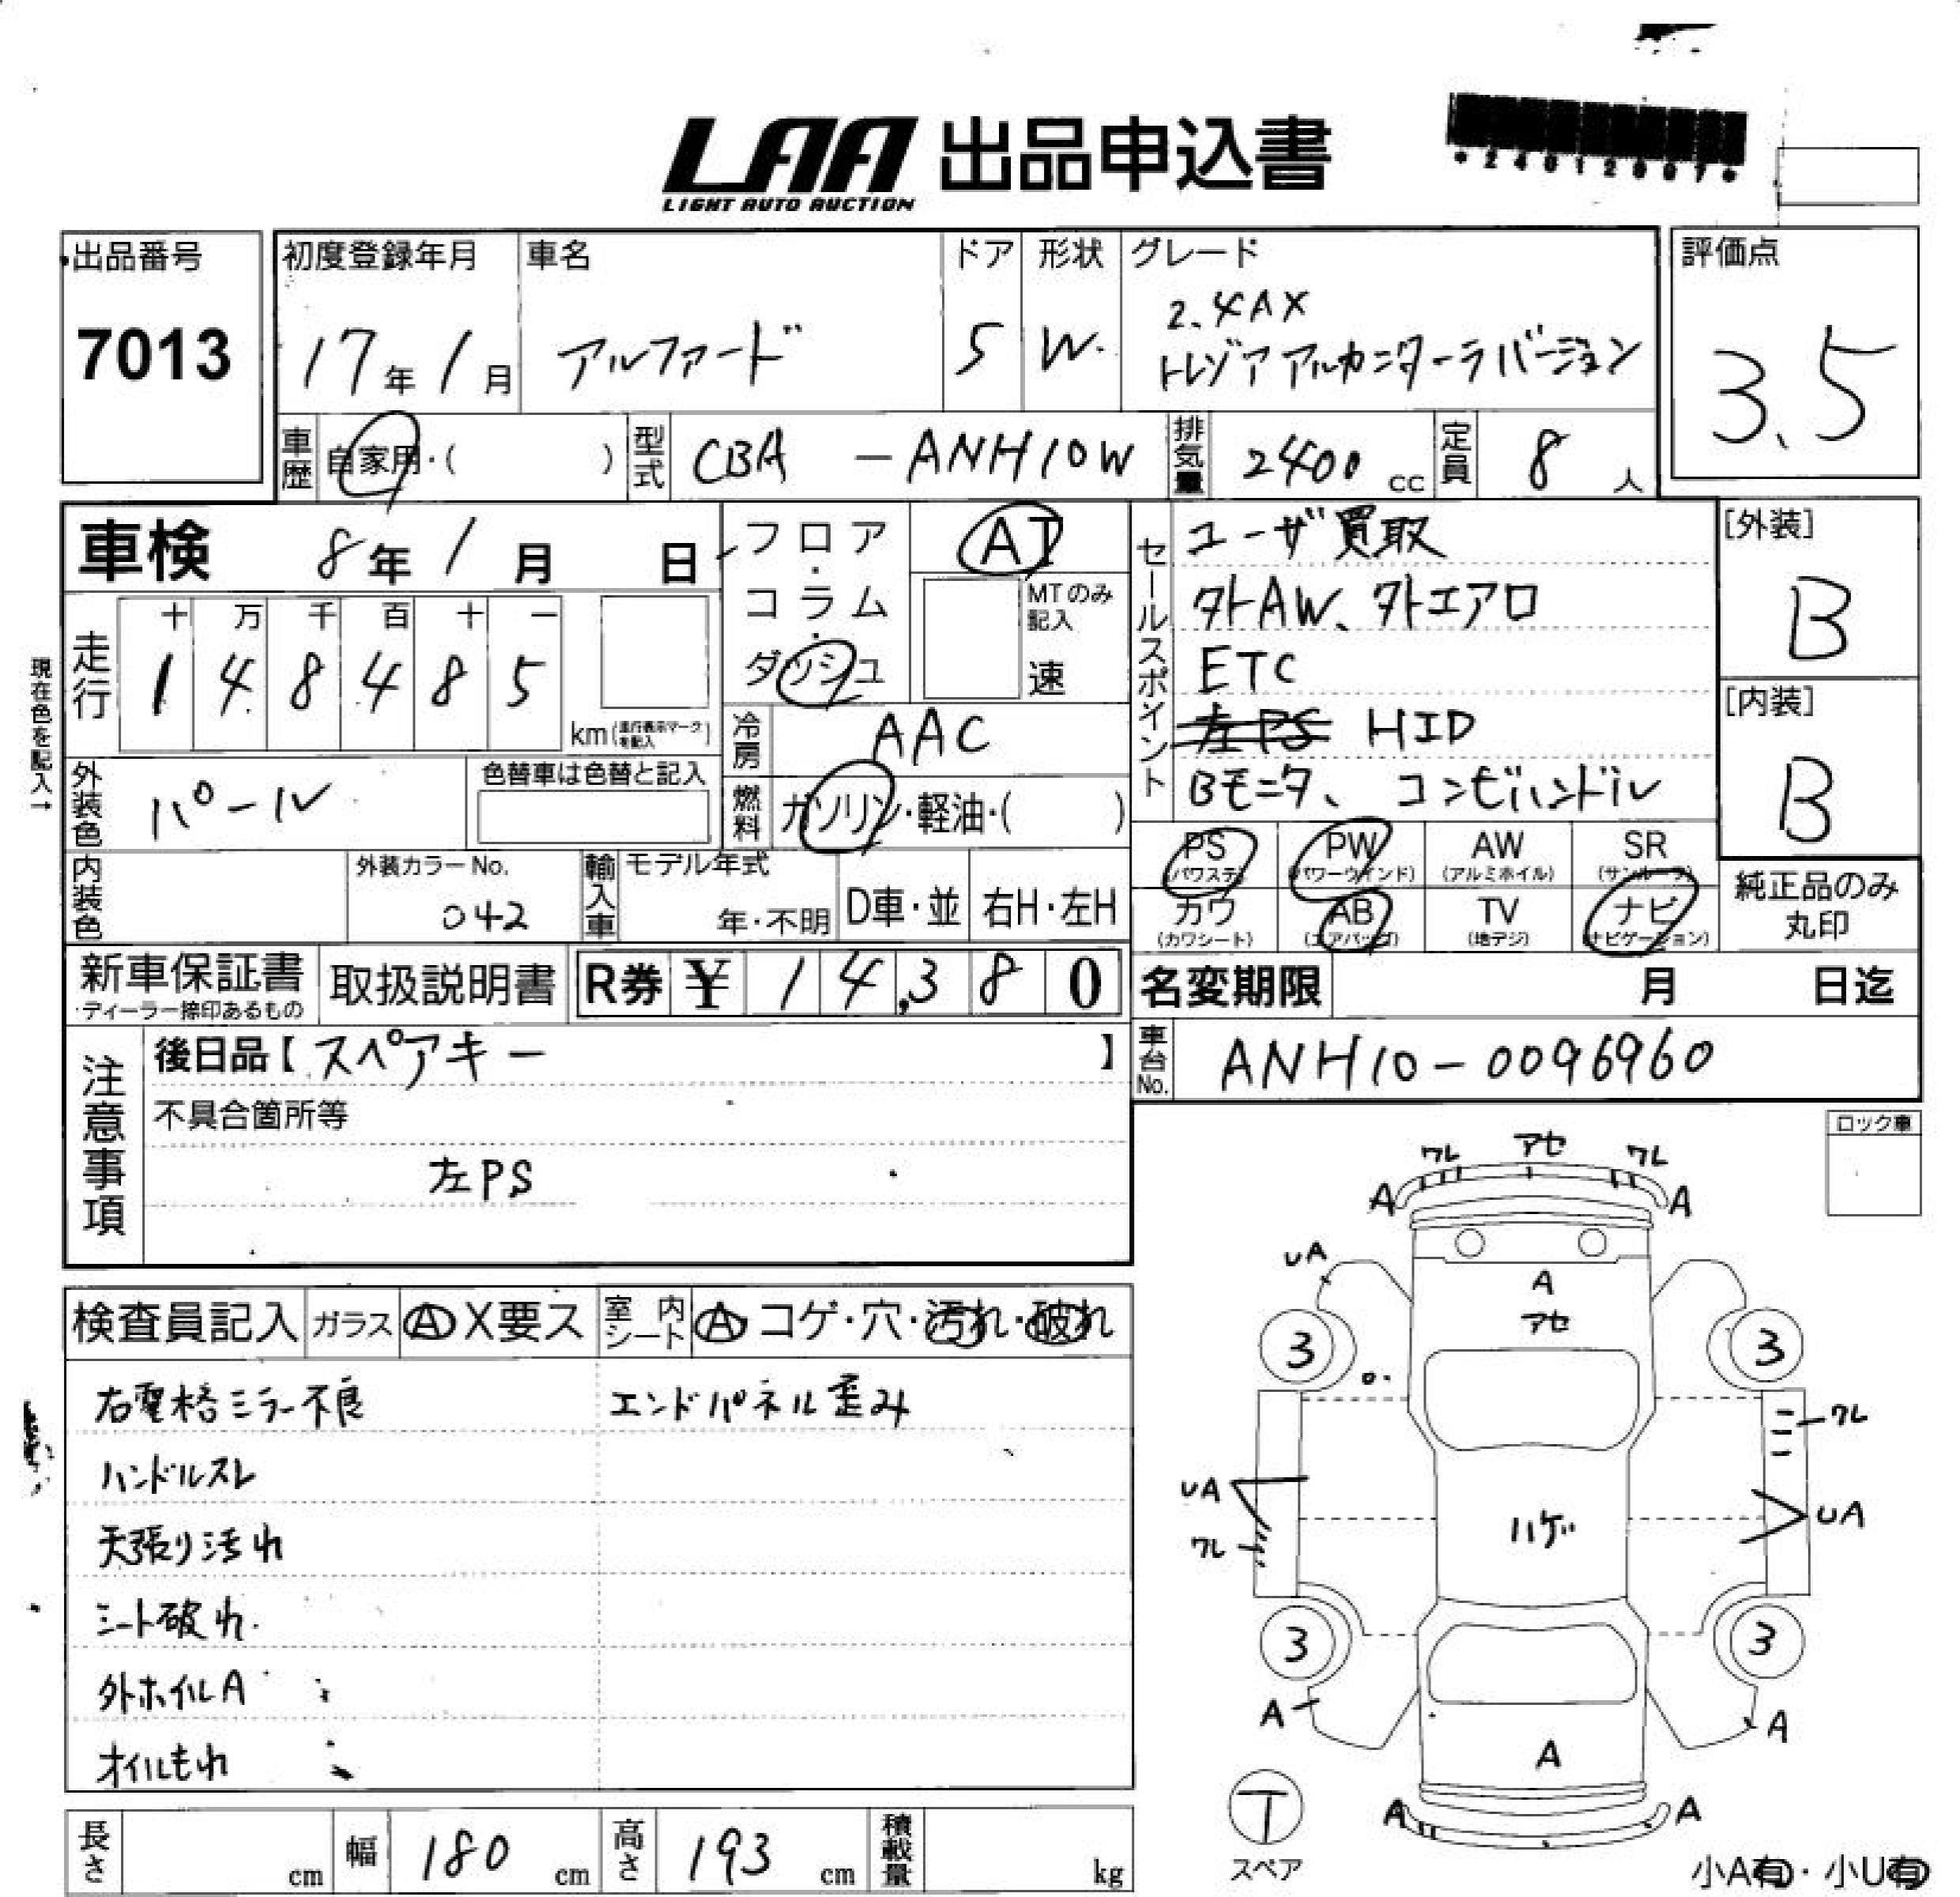 LAA 出品申込書
LIGHT AUTO AUCTION
出品番号
7013
初度登録年月
17年 1月
車名
アルファード
ドア
5
形状
W.
グレード
2.4AX
トレゾア アルカンターラバージョン
評価点
3.5
車歴
自家用・( )
型式
CBA - ANH10W
排気量
2400 cc
定員
8 人
車検 8年 1月 日
フロア・コラム・ダッシュ
AT
MTのみ記入
速
セールスポイント
ユーザ買取
外AW、外エアロ
ETC
左PS HID
Bモニタ、コンビハンドル
[外装]
B
[内装]
B
現在色を記入→
走行
十 万 千 百 十 一
1 4 8 4 8 5
km(走行表示マークを記入)
冷房
AAC
燃料
ガソリン・軽油・( )
外装色
パール
色替車は色替と記入
内装色
外装カラーNo.
042
輸入車
モデル年式
年・不明
D車・並
右H・左H
PS (パワステ)
PW (パワーウインド)
AW (アルミホイル)
SR (サンルーフ)
カワ (カワシート)
AB (エアバッグ)
TV (地デジ)
ナビ (ナビゲーション)
純正品のみ丸印
新車保証書
ディーラー捺印あるもの
取扱説明書
R券 ¥ 14,380
名変期限 月 日迄
車台No.
ANH10-0096960
注意事項
後日品【スペアキー】
不具合箇所等
左PS
ロック車
検査員記入
ガラス A X要ス
室内シート A・コゲ・穴・汚れ・破れ
右電格ミラー不良
エンドパネル歪み
ハンドルスレ
天張り汚れ
シート破れ.
外ホイルA
オイルもれ
ワレ アセ ワレ
A A
UA
A
アセ
3 3
ワレ
UA
UA
ハゲ
ワレ
3 3
A A
A
A A
T
スペア
長さ cm
幅 180 cm
高さ 193 cm
積載量 kg
小A有・小U有